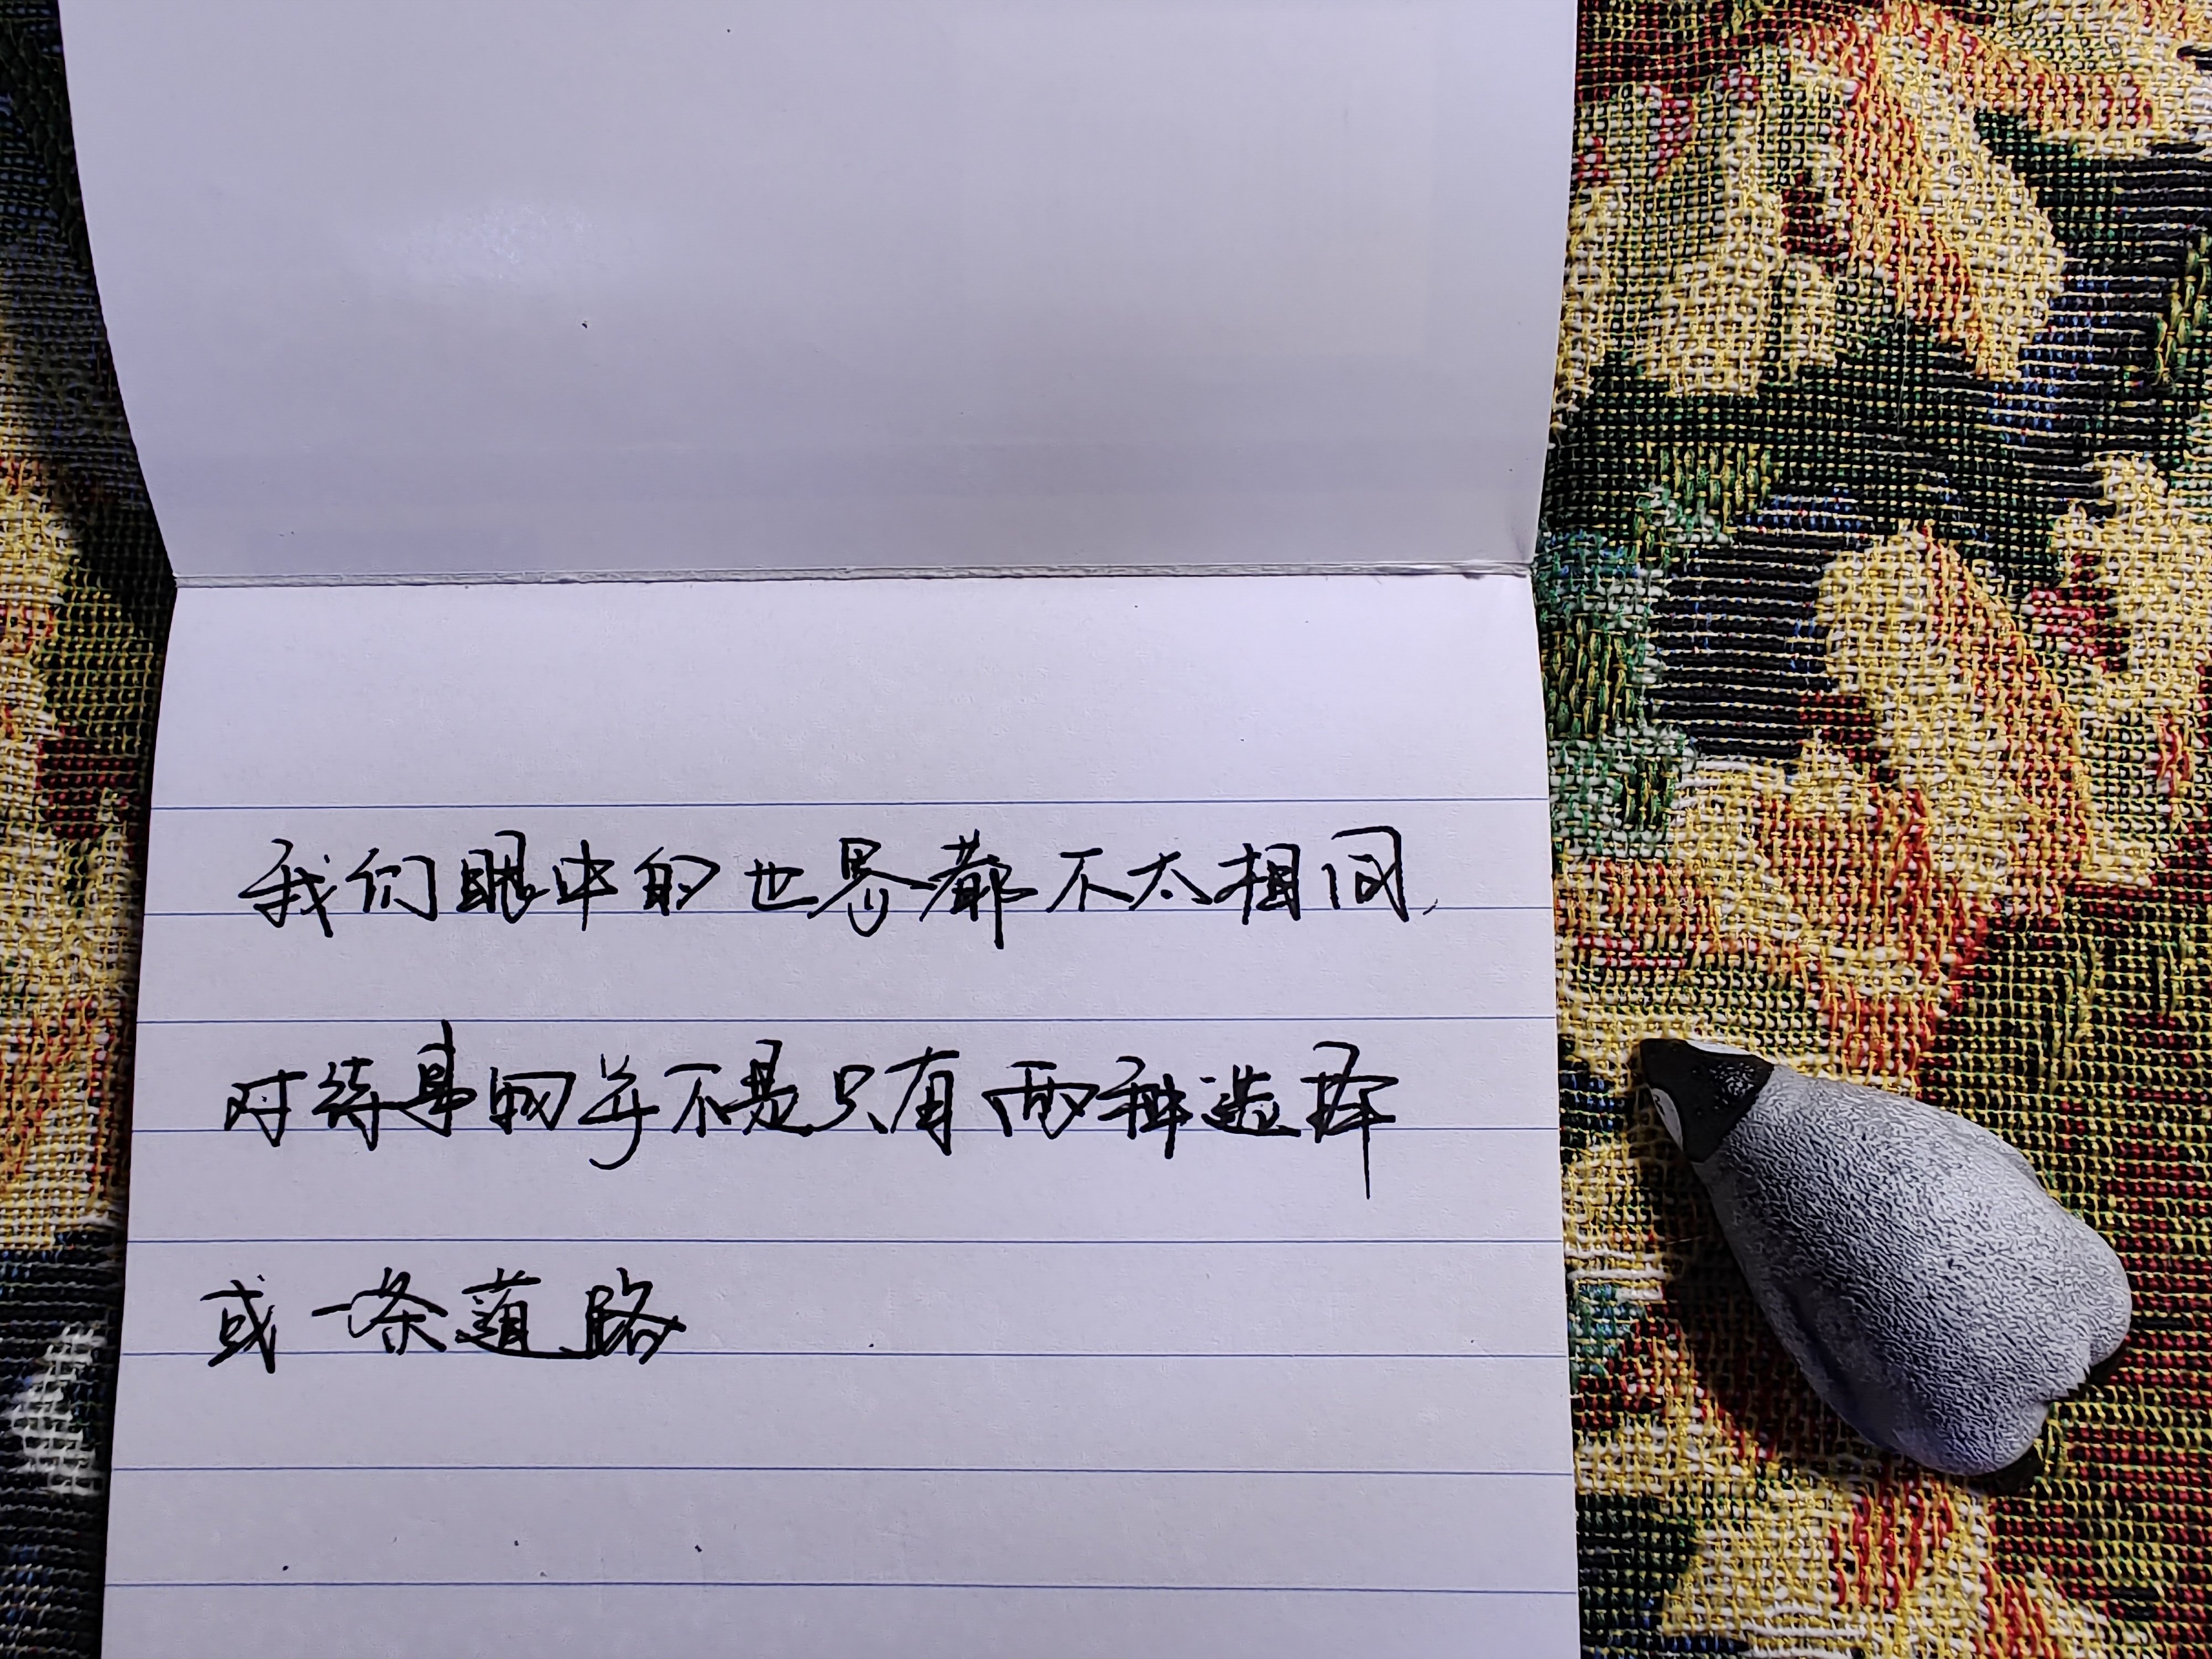 我们眼中的世界都不太相同,
对待事物并不是只有两种选择
或一条道路